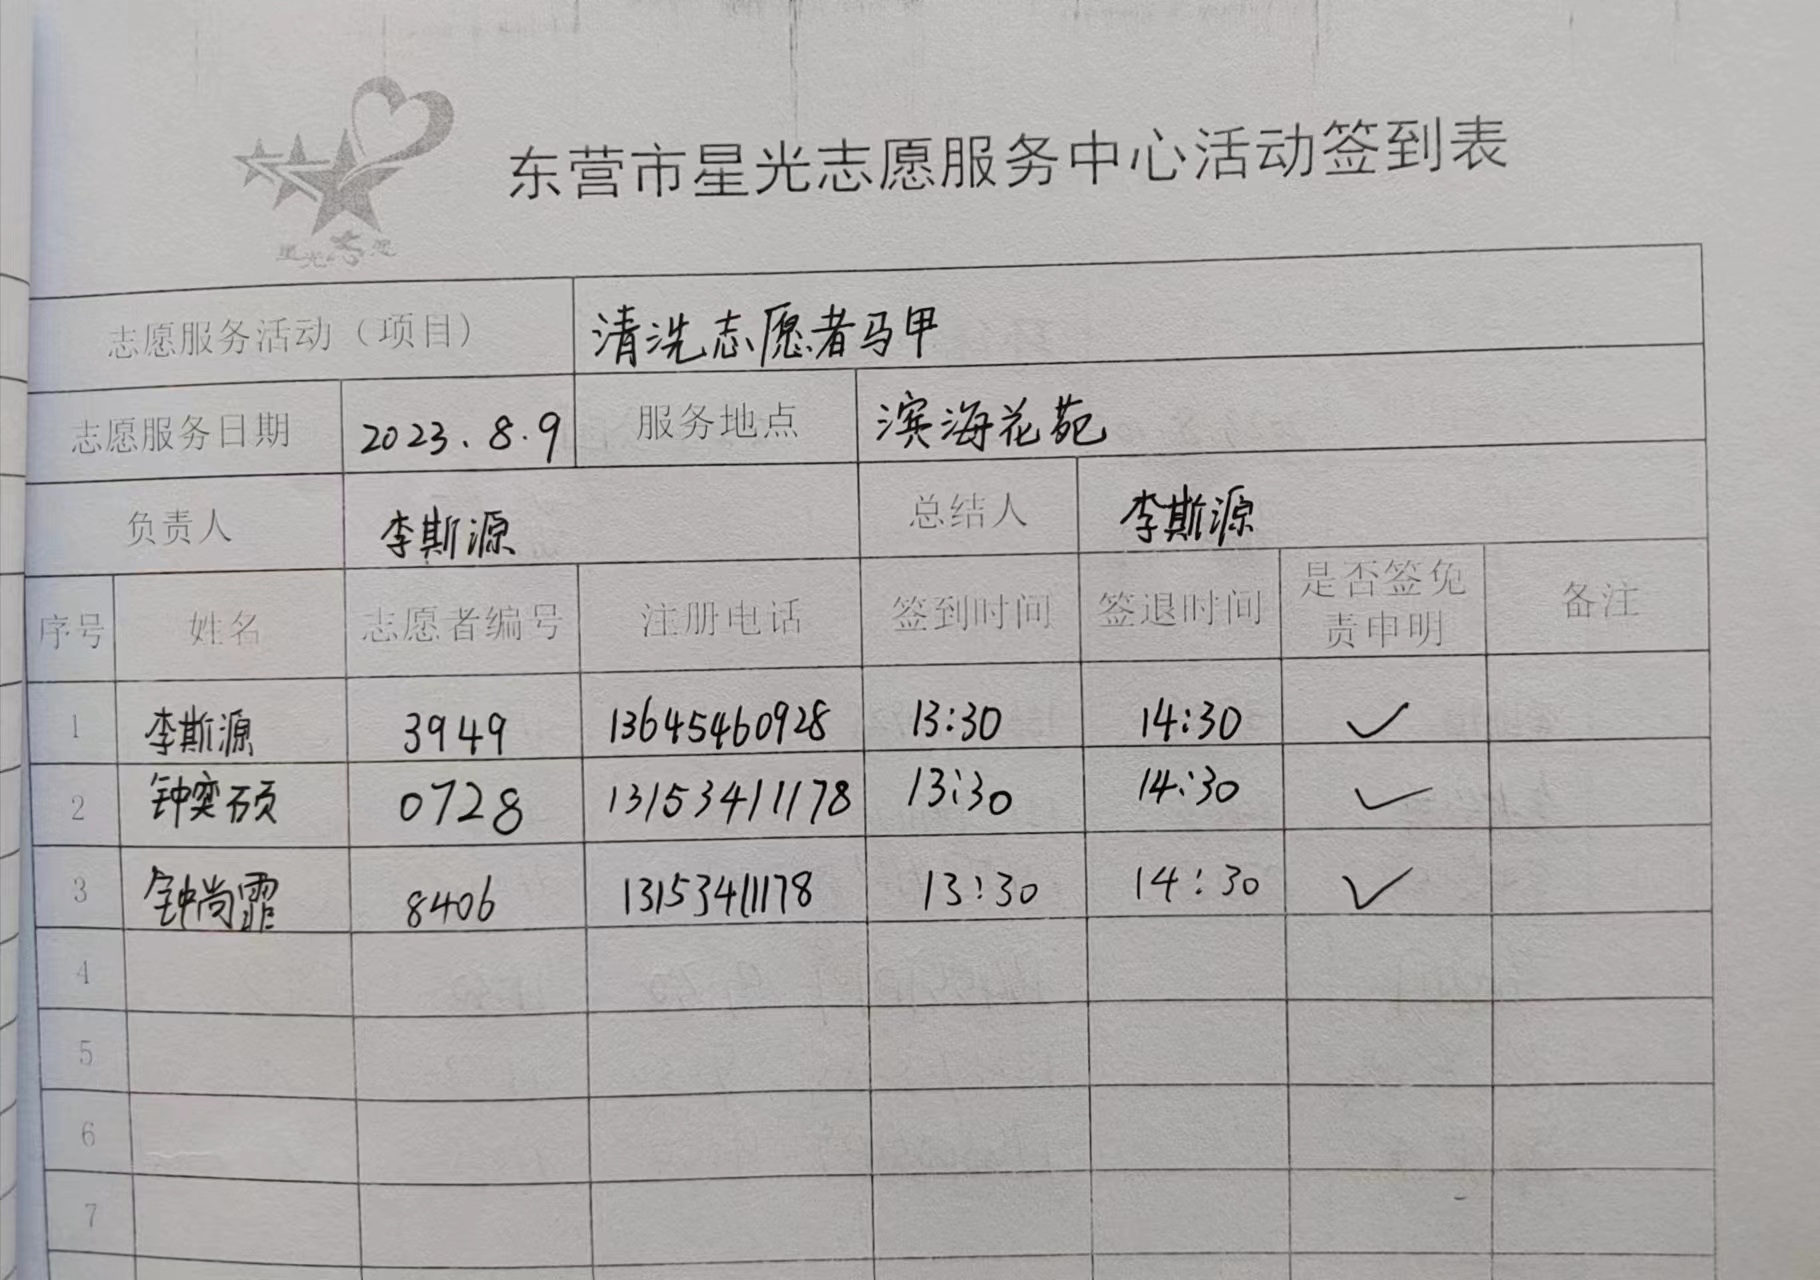 星光志愿
东营市星光志愿服务中心活动签到表
志愿服务活动（项目） 清洗志愿者马甲
志愿服务日期 2023.8.9 服务地点 滨海花苑
负责人 李斯源 总结人 李斯源
序号 姓名 志愿者编号 注册电话 签到时间 签退时间 是否签免责申明 备注
1 李斯源 3949 13645460928 13:30 14:30 ✓
2 钟奕硕 0728 13153411178 13:30 14:30 ✓
3 钟尚霏 8406 13153411178 13:30 14:30 ✓
4
5
6
7